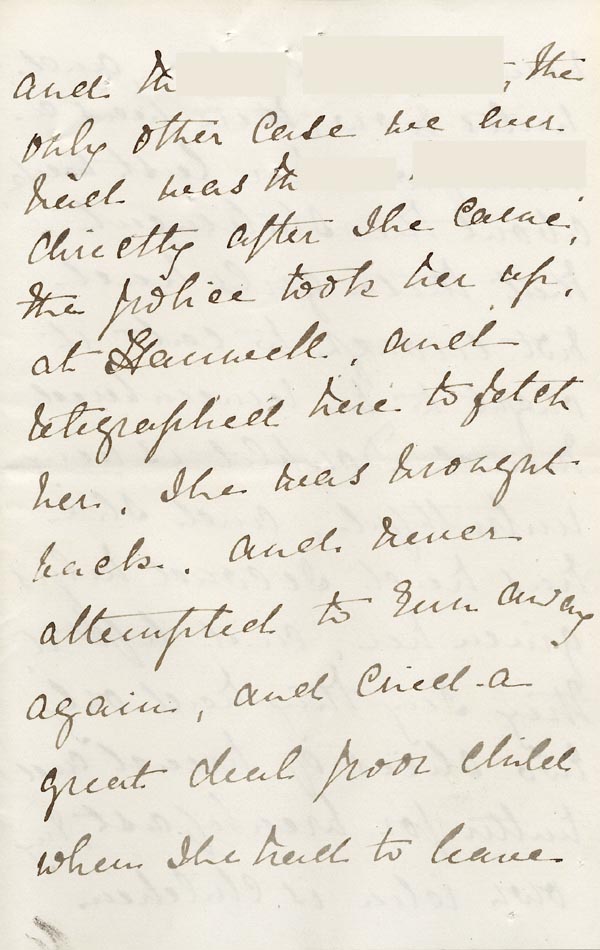 and th
, the
only other case we ever
had was th
directly after she came,
the police took her up,
at Hanwell, and
telegraphed here to fetch
her. She was brought
back. and never
attempted to run away
again, and cried a
great deal poor child
when she had to leave